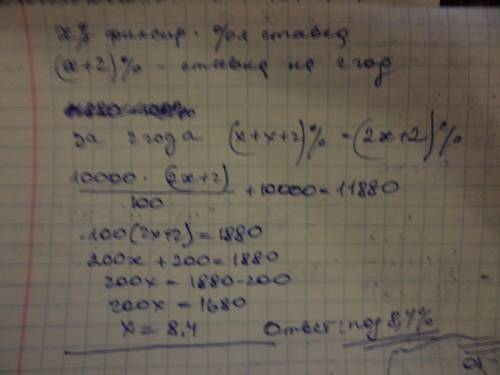 х% фиксир. %ая ставка
(х+2)% - ставка на 2 год
за 2 года (х+х+2)% = (2х+2)%
10000 · (2х+2)
100
+10000=11880
100(2х+2)=1880
200х+200=1880
200х = 1880-200
200х = 1680
х = 8,4 Ответ: под 8,4%